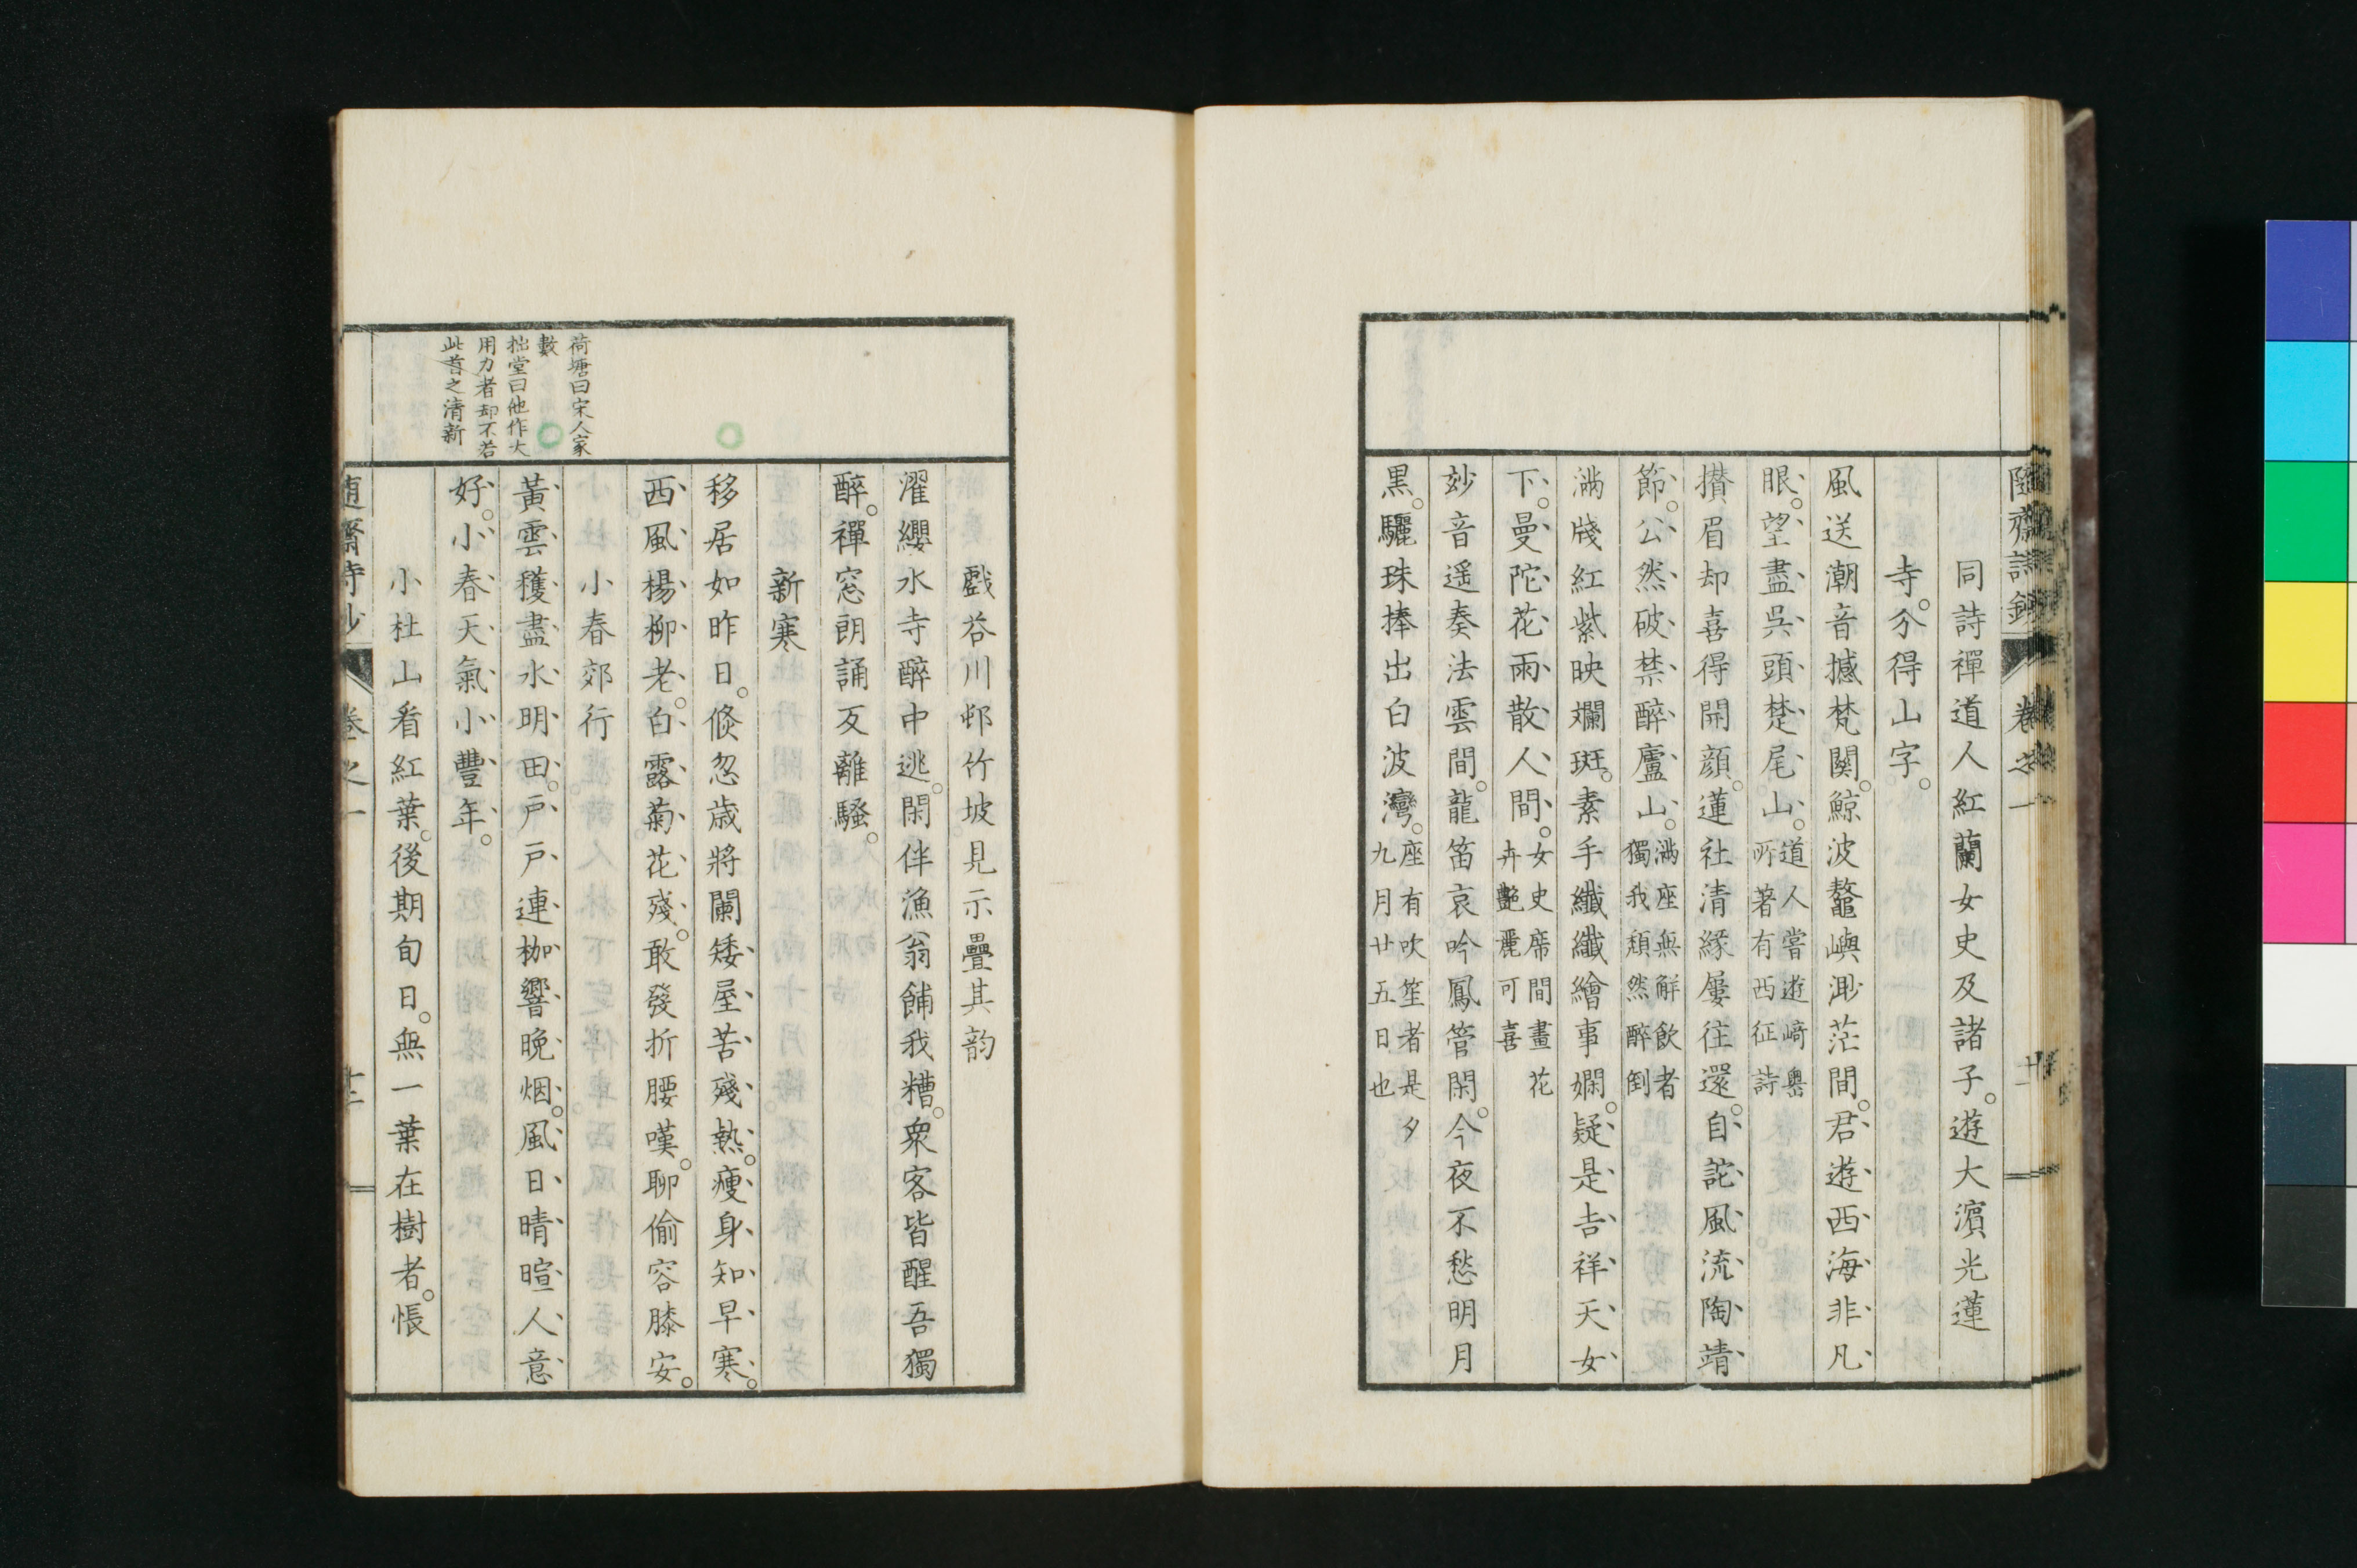 隨齋詩鈔 卷之一
同詩禪道人紅蘭女史及諸子。遊大濱光蓮
寺。分得山字。
風送潮音撼梵關。鯨波鼇嶼渺茫間。君遊西海非凡
眼。望盡吳頭楚尾山。道人嘗遊崎奧所著有西征詩
攢眉却喜得開顔。蓮社清緣屢往還。自詑風流陶靖
節。公然破禁醉廬山。滿座無解飲者獨我頹然醉倒
滿牋紅紫映斕斑。素手纖纖繪事嫻。疑是吉祥天女
下。曼陀花雨散人間。女史席間畫花卉艷麗可喜
妙音遥奏法雲間。龍笛哀吟鳳管閑。今夜不愁明月
黒。驪珠捧出白波灣。座有吹笙者是夕九月廿五日也
戲荅川邨竹坡見示疊其韵
濯纓水寺醉中逃。閑伴漁翁餔我糟。衆客皆醒吾獨
醉。禪窓朗誦反離騷。
新寒
移居如昨日。倐忽歳將闌。矮屋苦殘熱。瘦身知早寒。
西風楊柳老。白露菊花殘。敢發折腰嘆。聊偷容膝安。
小春郊行
黃雲穫盡水明田。戸戸連枷響晚烟。風日晴暄人意
好。小春天氣小豐年。
小杜山看紅葉。後期旬日。無一葉在樹者。悵
荷塘曰宋人家
數
拙堂曰他作大
用力者却不若
此首之清新
隨齋詩鈔 卷之一